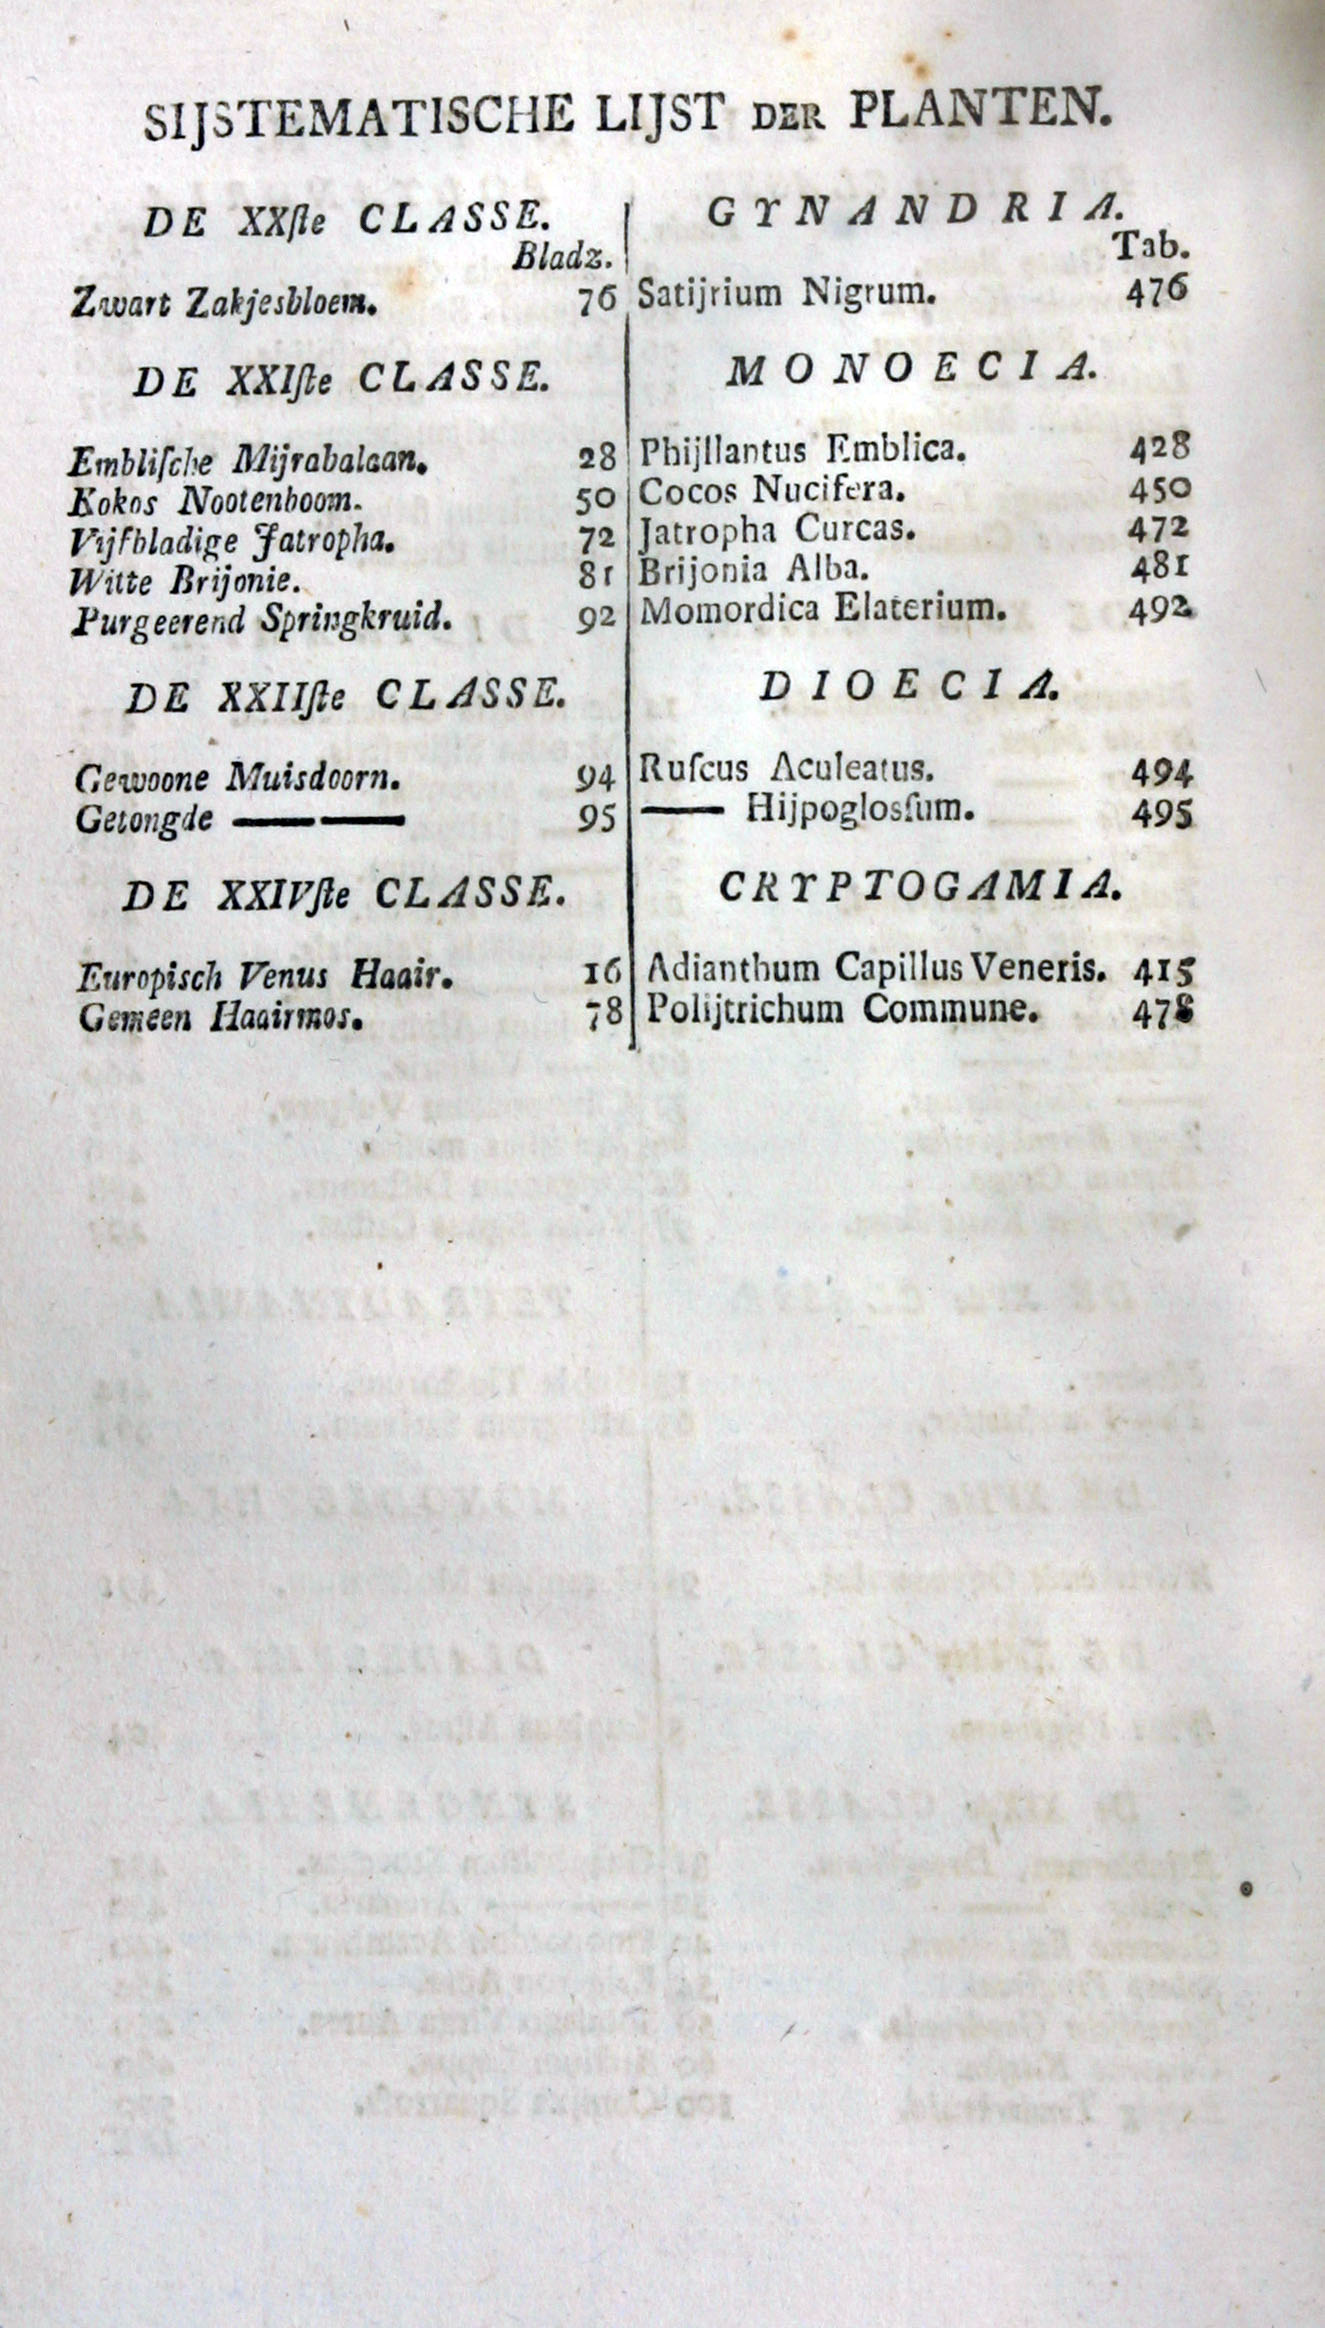 SIJSTEMATISCHE LIJST DER PLANTEN.
DE XXſte CLASSE. GYNANDRIA.
Bladz. Tab.
Zwart Zakjesbloem. 76 Satijrium Nigrum. 476
DE XXIſte CLASSE. MONOECIA.
Embliſche Mijrabalaan. 28 Phijllantus Emblica. 428
Kokos Nootenboom. 50 Cocos Nucifera. 450
Vijfbladige Jatropha. 72 Jatropha Curcas. 472
Witte Brijonie. 81 Brijonia Alba. 481
Purgeerend Springkruid. 92 Momordica Elaterium. 492
DE XXIIſte CLASSE. DIOECIA.
Gewoone Muisdoorn. 94 Ruſcus Aculeatus. 494
Getongde —— —— 95 —— Hijpogloſſum. 495
DE XXIVſte CLASSE. CRYPTOGAMIA.
Europisch Venus Haair. 16 Adianthum Capillus Veneris. 415
Gemeen Haairmos. 78 Polijtrichum Commune. 478